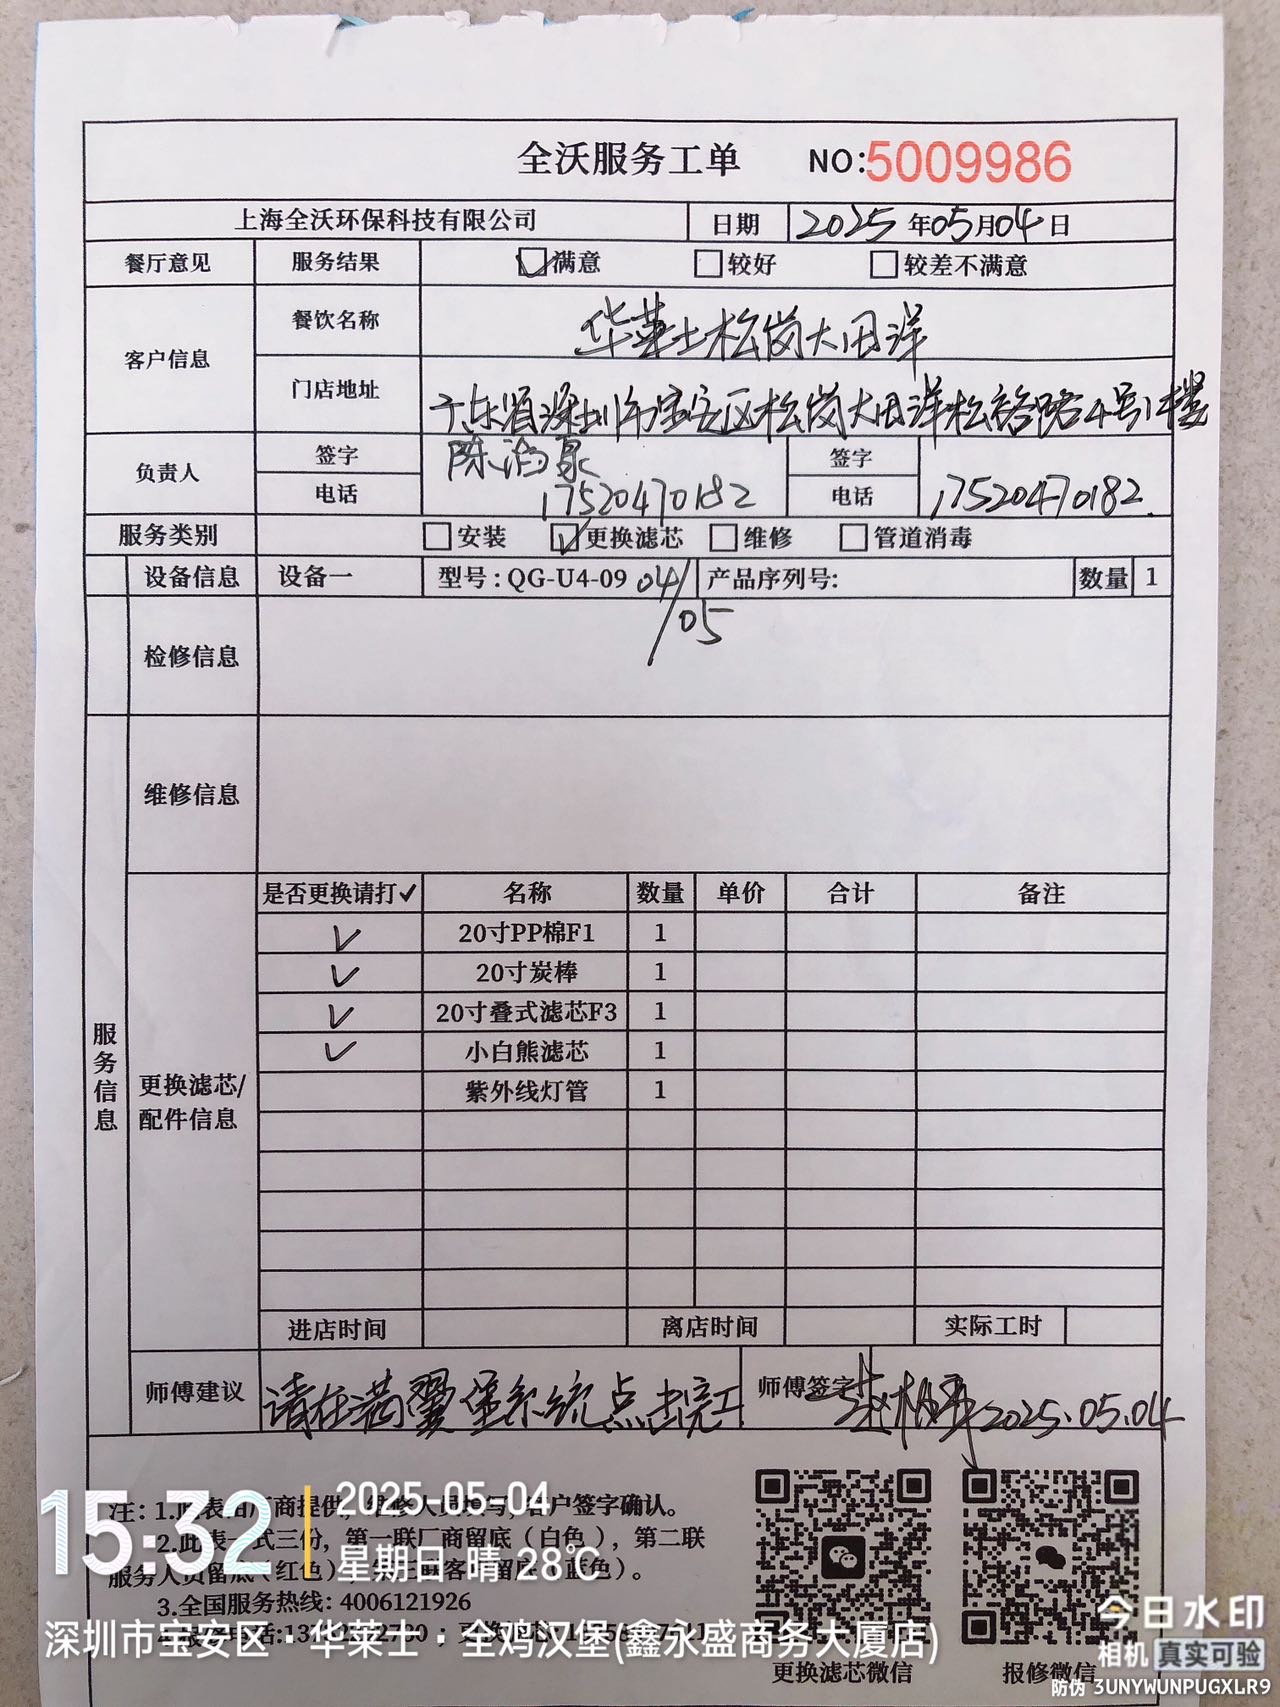 全沃服务工单 NO:5009986
上海全沃环保科技有限公司 日期 2025年05月04日
餐厅意见 服务结果 ☑满意 □较好 □较差不满意
客户信息 餐饮名称 华莱士松岗大田洋
门店地址 广东省深圳市宝安区松岗大田洋松裕路4号1楼
负责人 签字 陈 泉 签字
电话 17520470182 电话 17520470182
服务类别 □安装 ☑更换滤芯 □维修 □管道消毒
设备信息 设备一 型号:QG-U4-09 04/05 产品序列号: 数量 1
检修信息
维修信息
是否更换请打✓ 名称 数量 单价 合计 备注
✓ 20寸PP棉F1 1
✓ 20寸炭棒 1
✓ 20寸叠式滤芯F3 1
✓ 小白熊滤芯 1
紫外线灯管 1
服务信息
更换滤芯/
配件信息
进店时间 离店时间 实际工时
师傅建议 请在满翼堡系统点击完工 师傅签字 赵 2025.05.04
注: 1.此表由厂商提供, 维修人员填写, 客户签字确认。
2.此表一式三份, 第一联厂商留底(白色), 第二联
服务人员留底(红色), 客 留底(蓝色)。
3.全国服务热线: 4006121926
更换滤芯微信 报修微信
15:32 2025-05-04
星期日 晴 28℃
深圳市宝安区·华莱士·全鸡汉堡(鑫永盛商务大厦店)
今日水印
相机 真实可验
防伪 3UNYWUNPUGXLR9